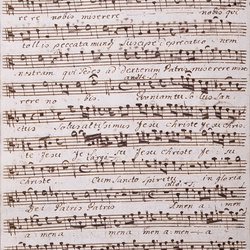 re re nobis miserere nobis qui
tollis peccata mundi Suscipe deprecationem
nostram qui sedes ad dexteram Patris miserere mise
rere no bis Quoniam tu solus San
ctus Solus altissimus Jesu Christe Jesu Chri
ste Jesu Je su Jesu Christe Jesu
Christe Cum Sancto Spiritu in gloria
Dei Patris Patris Amen a men
a mena mena men a-men-a